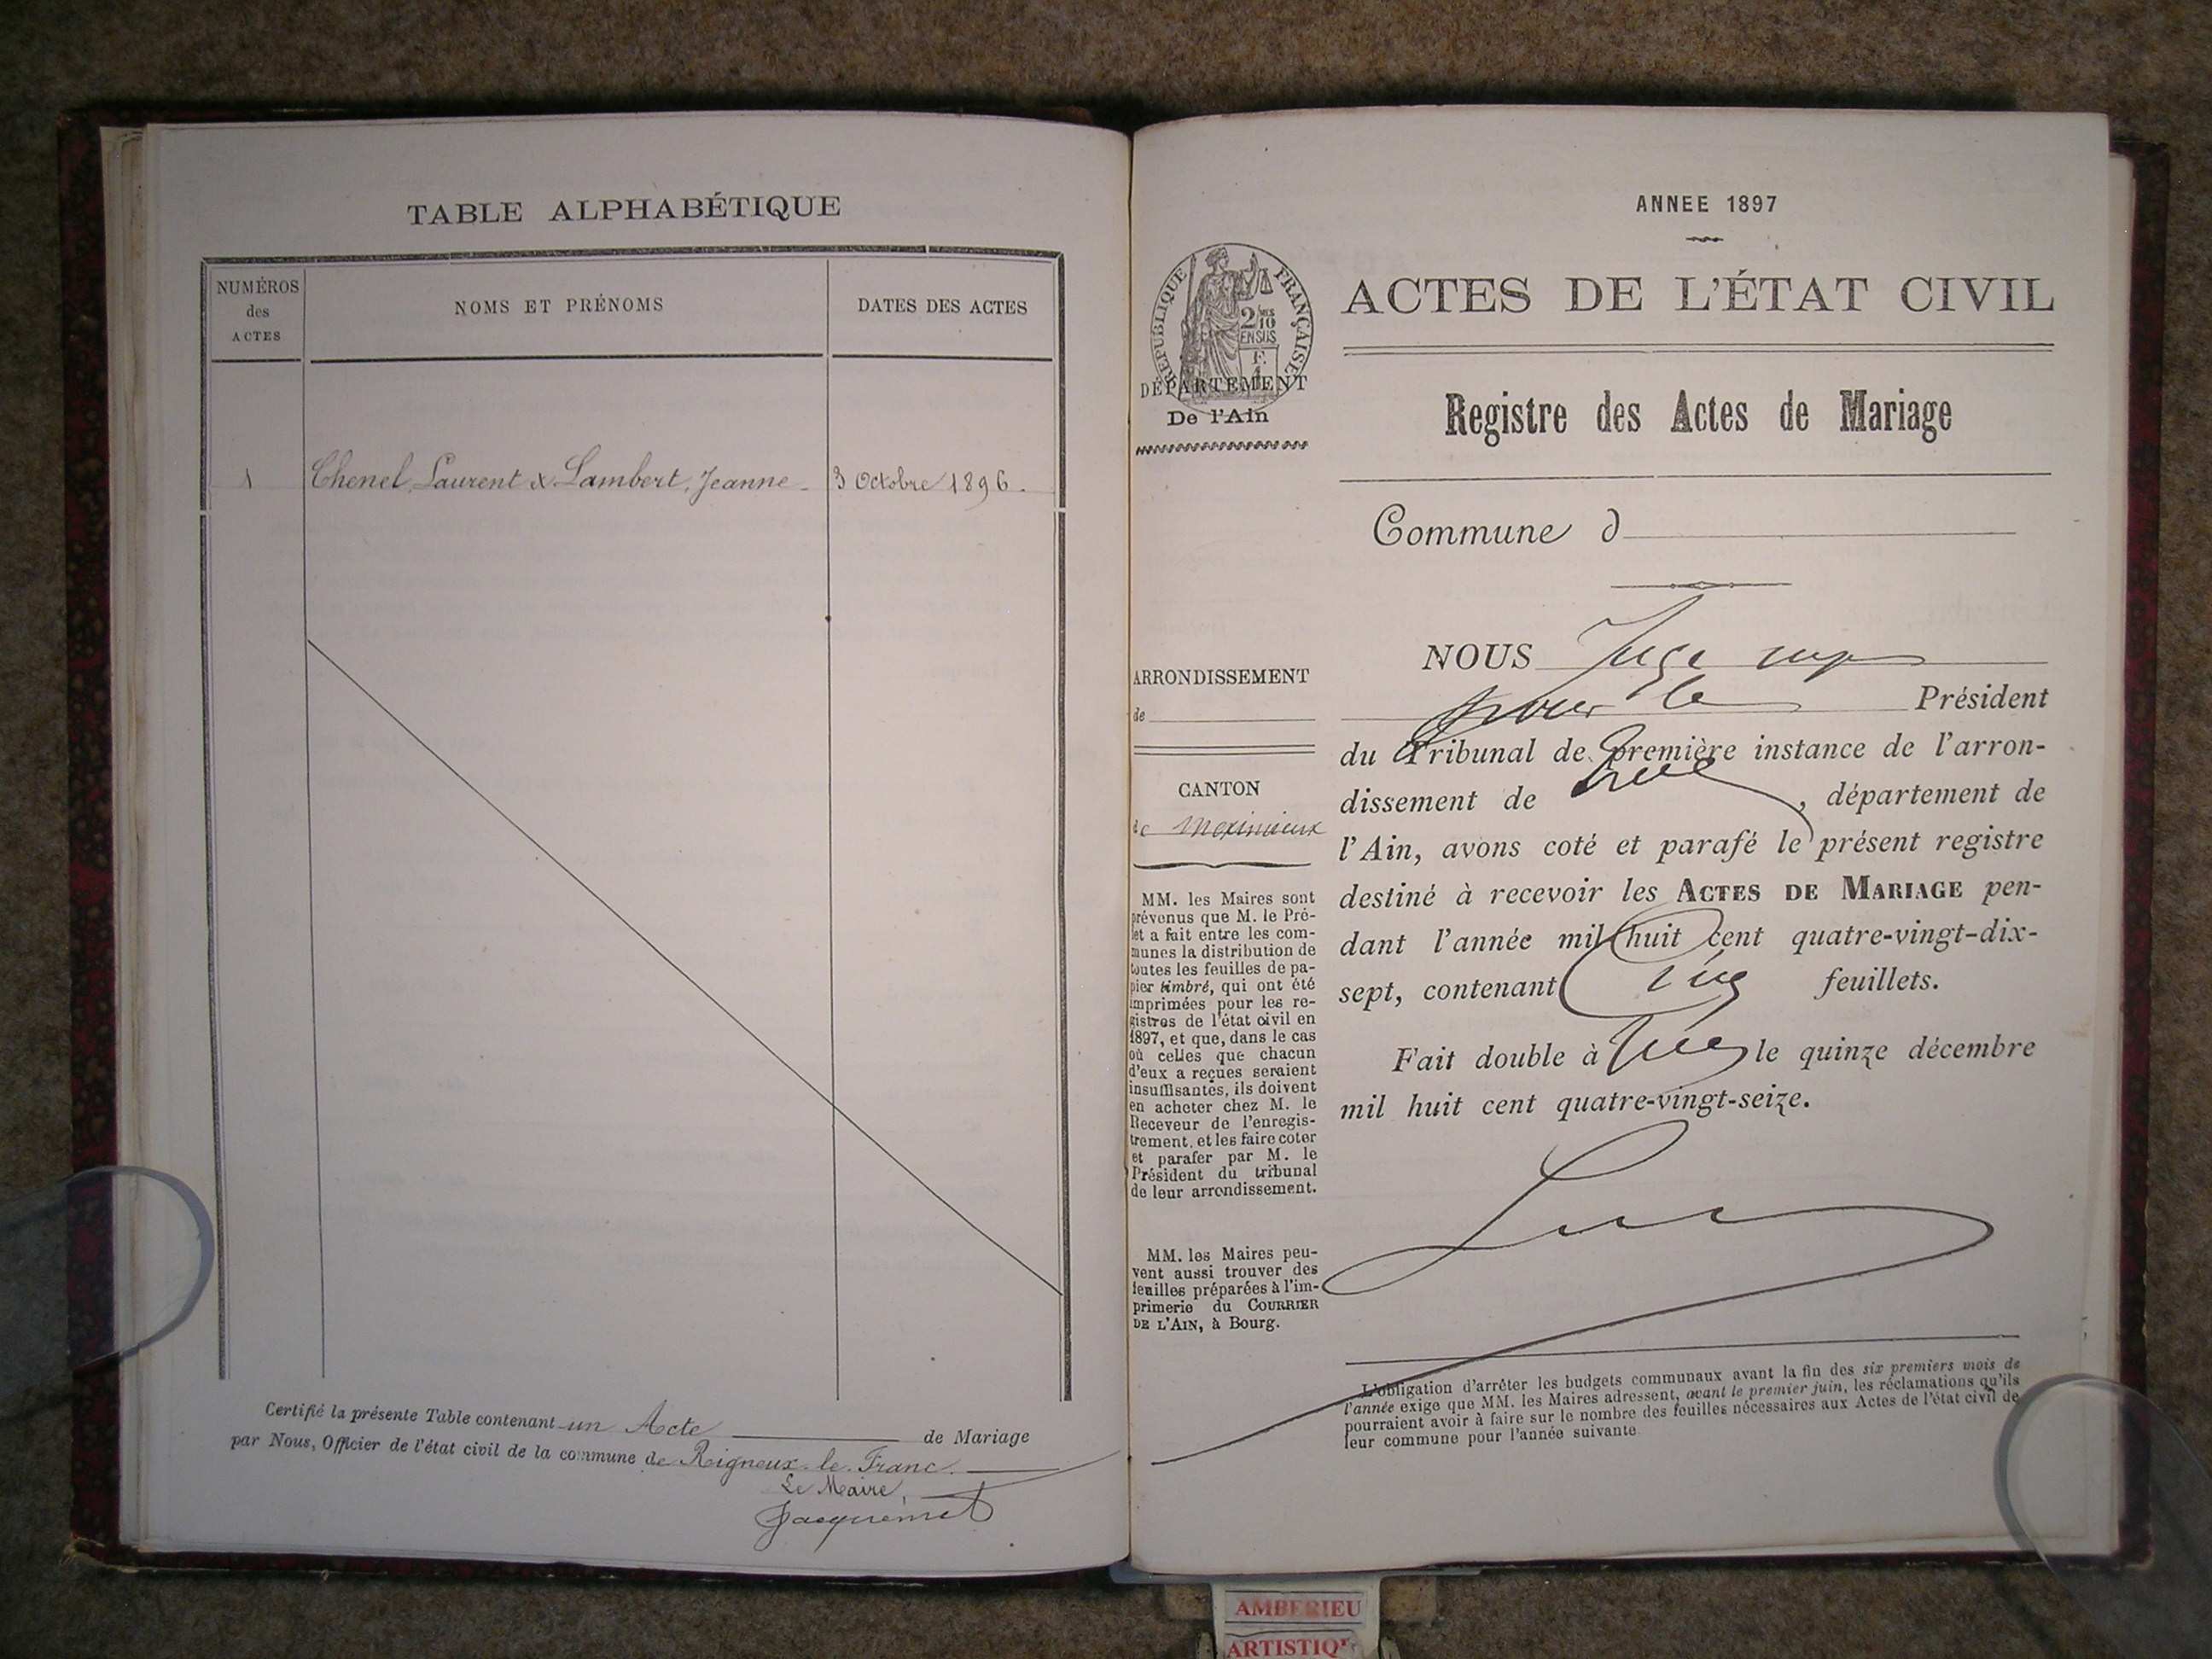 TABLE ALPHABÉTIQUE
NUMÉROS
des
ACTES
NOMS ET PRÉNOMS
DATES DES ACTES
1 Chenel, Laurent & Lambert, Jeanne 3 Octobre 1896.
Certifié la présente Table contenant un Acte de Mariage
par Nous, Officier de l'état civil de la commune de Rigneux-le-Franc.
Le Maire,
Jacquemet
ANNEE 1897
RÉPUBLIQUE FRANÇAISE
2/10
EN SUS
DÉPARTEMENT
De l'Ain
ARRONDISSEMENT
de
CANTON
de Meximieux
MM. les Maires sont
prévenus que M. le Pré-
fet a fait entre les com-
munes la distribution de
toutes les feuilles de pa-
pier timbré, qui ont été
imprimées pour les re-
gistres de l'état civil en
1897, et que, dans le cas
où celles que chacun
d'eux a reçues seraient
insuffisantes, ils doivent
en acheter chez M. le
Receveur de l'enregis-
trement, et les faire coter
et parafer par M. le
Président du tribunal
de leur arrondissement.
MM. les Maires peu-
vent aussi trouver des
feuilles préparées à l'im-
primerie du COURRIER
DE L'AIN, à Bourg.
ACTES DE L'ÉTAT CIVIL
Registre des Actes de Mariage
Commune d
NOUS Juge
pour le Président
du Tribunal de première instance de l'arron-
dissement de , département de
l'Ain, avons coté et parafé le présent registre
destiné à recevoir les ACTES DE MARIAGE pen-
dant l'année mil huit cent quatre-vingt-dix-
sept, contenant feuillets.
Fait double à le quinze décembre
mil huit cent quatre-vingt-seize.
L'obligation d'arrêter les budgets communaux avant la fin des six premiers mois de
l'année exige que MM. les Maires adressent, avant le premier juin, les réclamations qu'ils
pourraient avoir à faire sur le nombre des feuilles nécessaires aux Actes de l'état civil de
leur commune pour l'année suivante.
AMBERIEU
ARTISTIQ